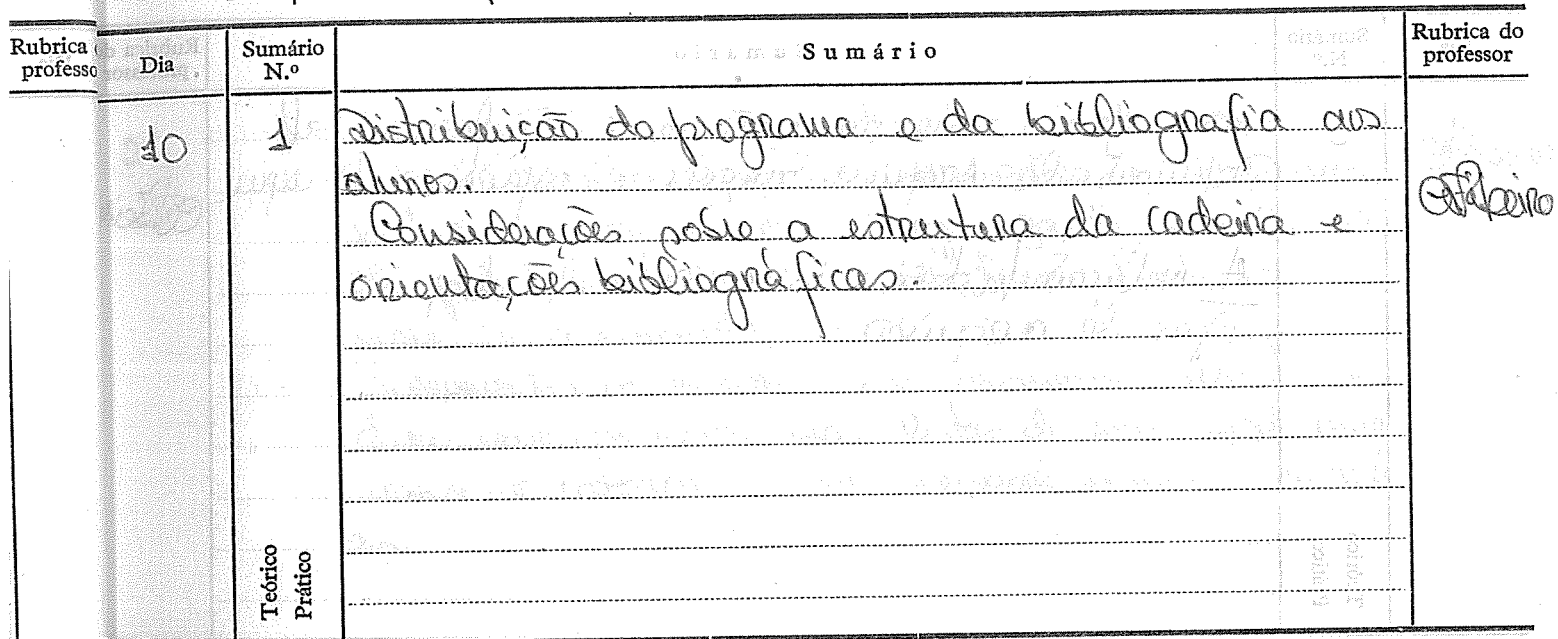 Rubrica
professo
Dia
Sumário
N.º
Sumário
Rubrica do
professor
10
1
Distribuição do programa e da bibliografia aos
alunos.
Considerações sobre a estrutura da cadeira e
orientações bibliográficas.
Teórico
Prático